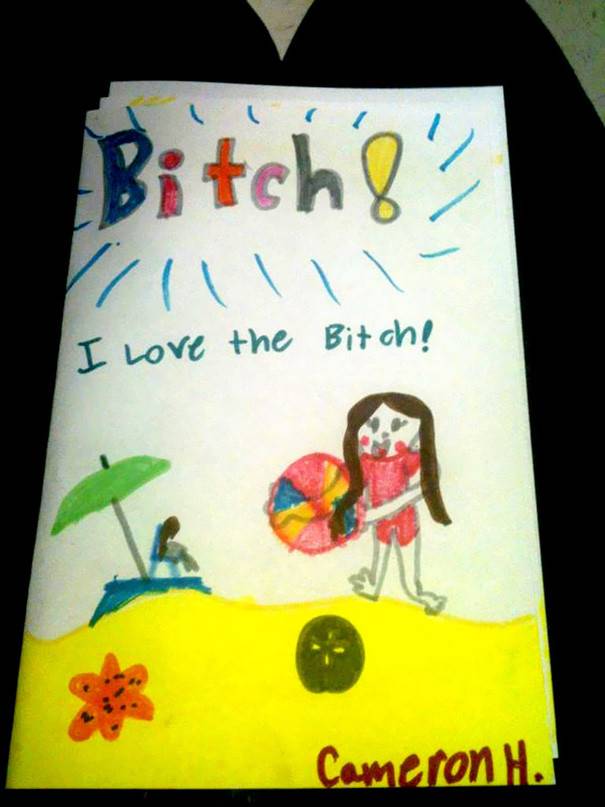 Bitch!
I Love the Bitch!
Cameron H.